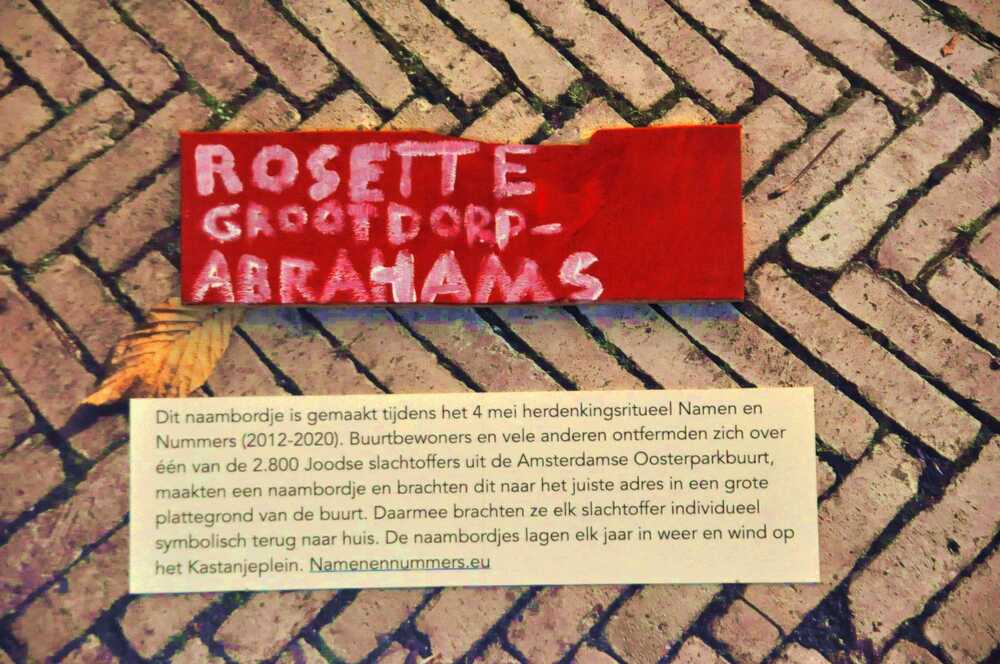 ROSETTE
GROOTDORP-
ABRAHAMS
Dit naambordje is gemaakt tijdens het 4 mei herdenkingsritueel Namen en
Nummers (2012-2020). Buurtbewoners en vele anderen ontfermden zich over
één van de 2.800 Joodse slachtoffers uit de Amsterdamse Oosterparkbuurt,
maakten een naambordje en brachten dit naar het juiste adres in een grote
plattegrond van de buurt. Daarmee brachten ze elk slachtoffer individueel
symbolisch terug naar huis. De naambordjes lagen elk jaar in weer en wind op
het Kastanjeplein. Namenennummers.eu